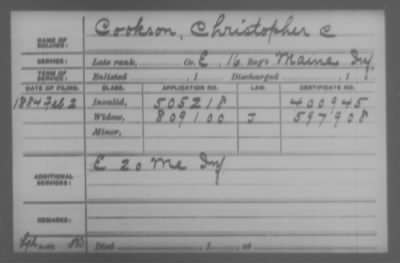 NAME OF SOLDIER: Cookson, Christopher C
SERVICE: Late rank, Co. E, 16 Reg't Maine Inf.
TERM OF SERVICE: Enlisted , 1 Discharged , 1
DATE OF FILING. CLASS. APPLICATION NO. LAW. CERTIFICATE NO.
1884 Feb 2 Invalid, 505218 400945
Widow, 809100 597908
Minor,
ADDITIONAL SERVICES: E 20 Me Inf
REMARKS:
Died , 1 , at